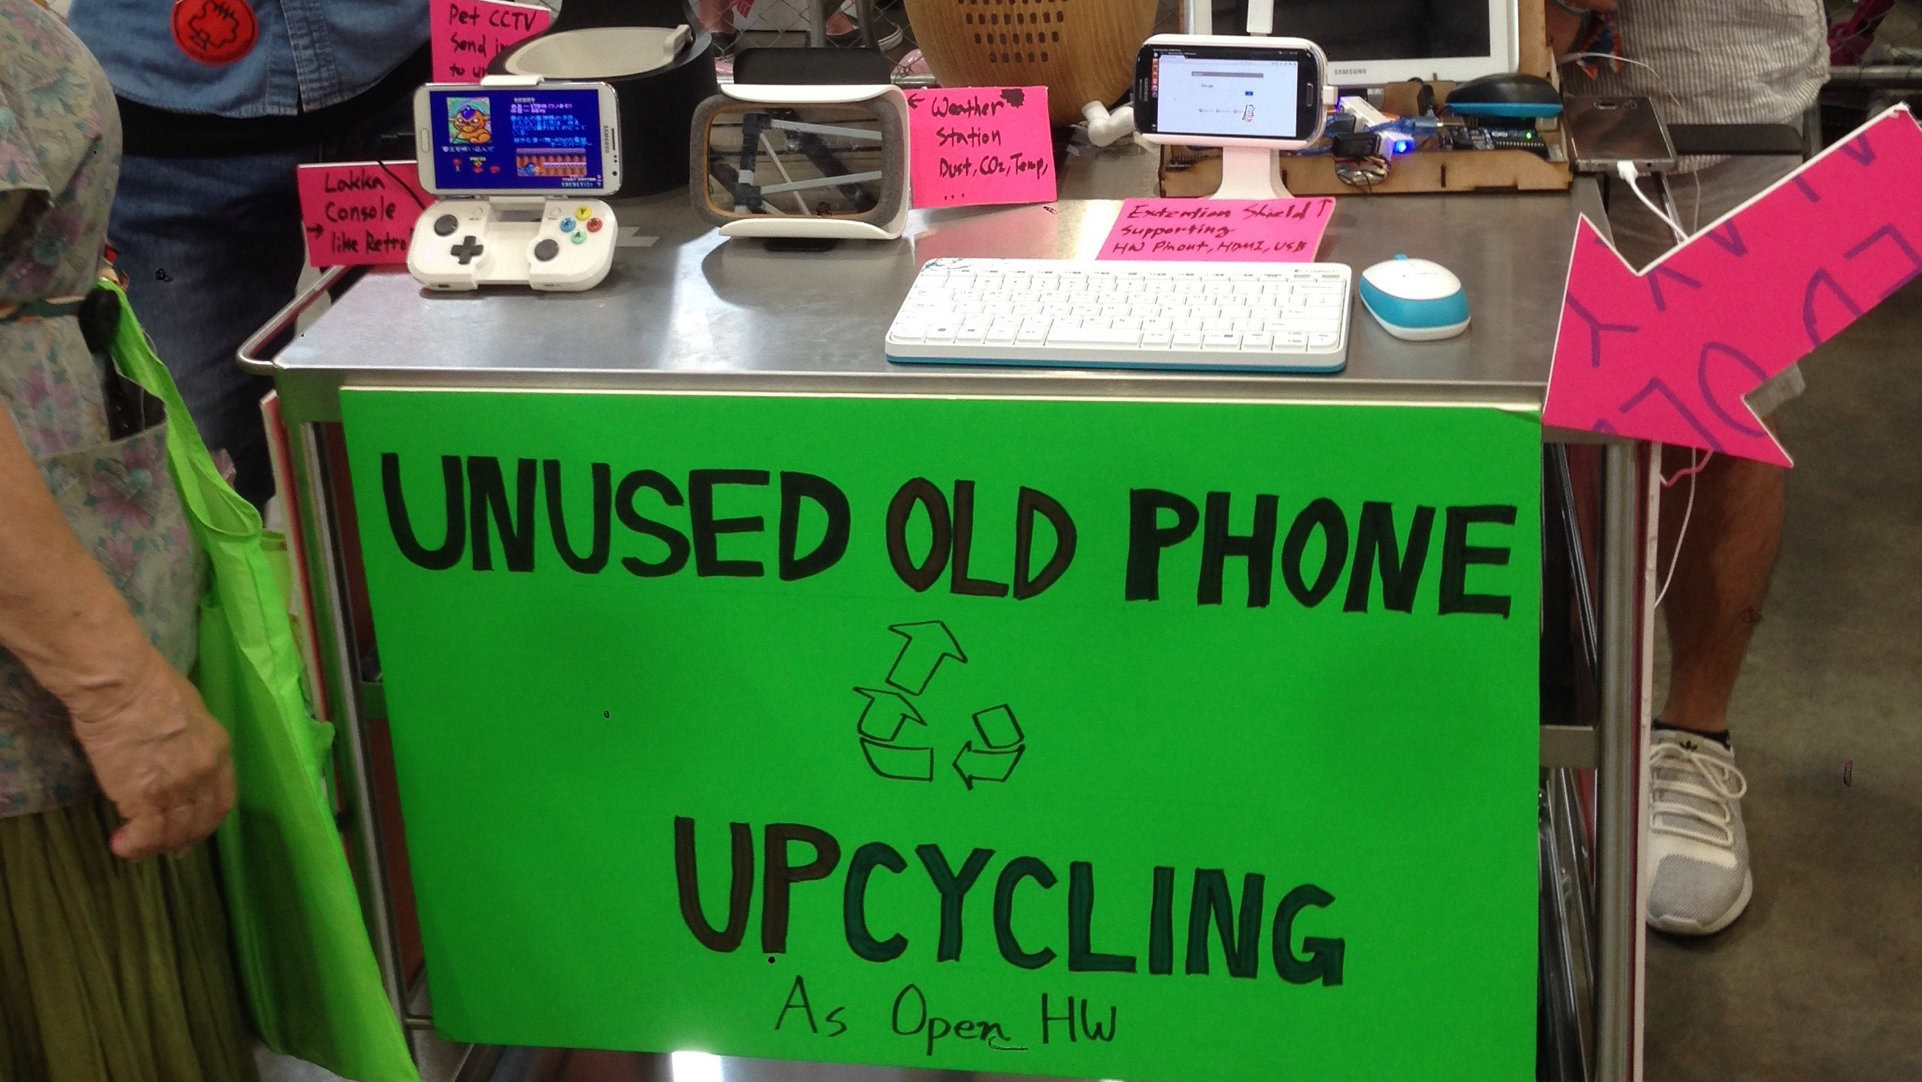 Pet CCTV
Send
to
Lakka
Console
→ like Retro
← Weather
Station
Dust, CO2, Temp,
...
Extention Shield ↑
supporting
HW Pinout, HDMI, USB
SAMSUNG
UNUSED OLD PHONE
UPCYCLING
As Open HW